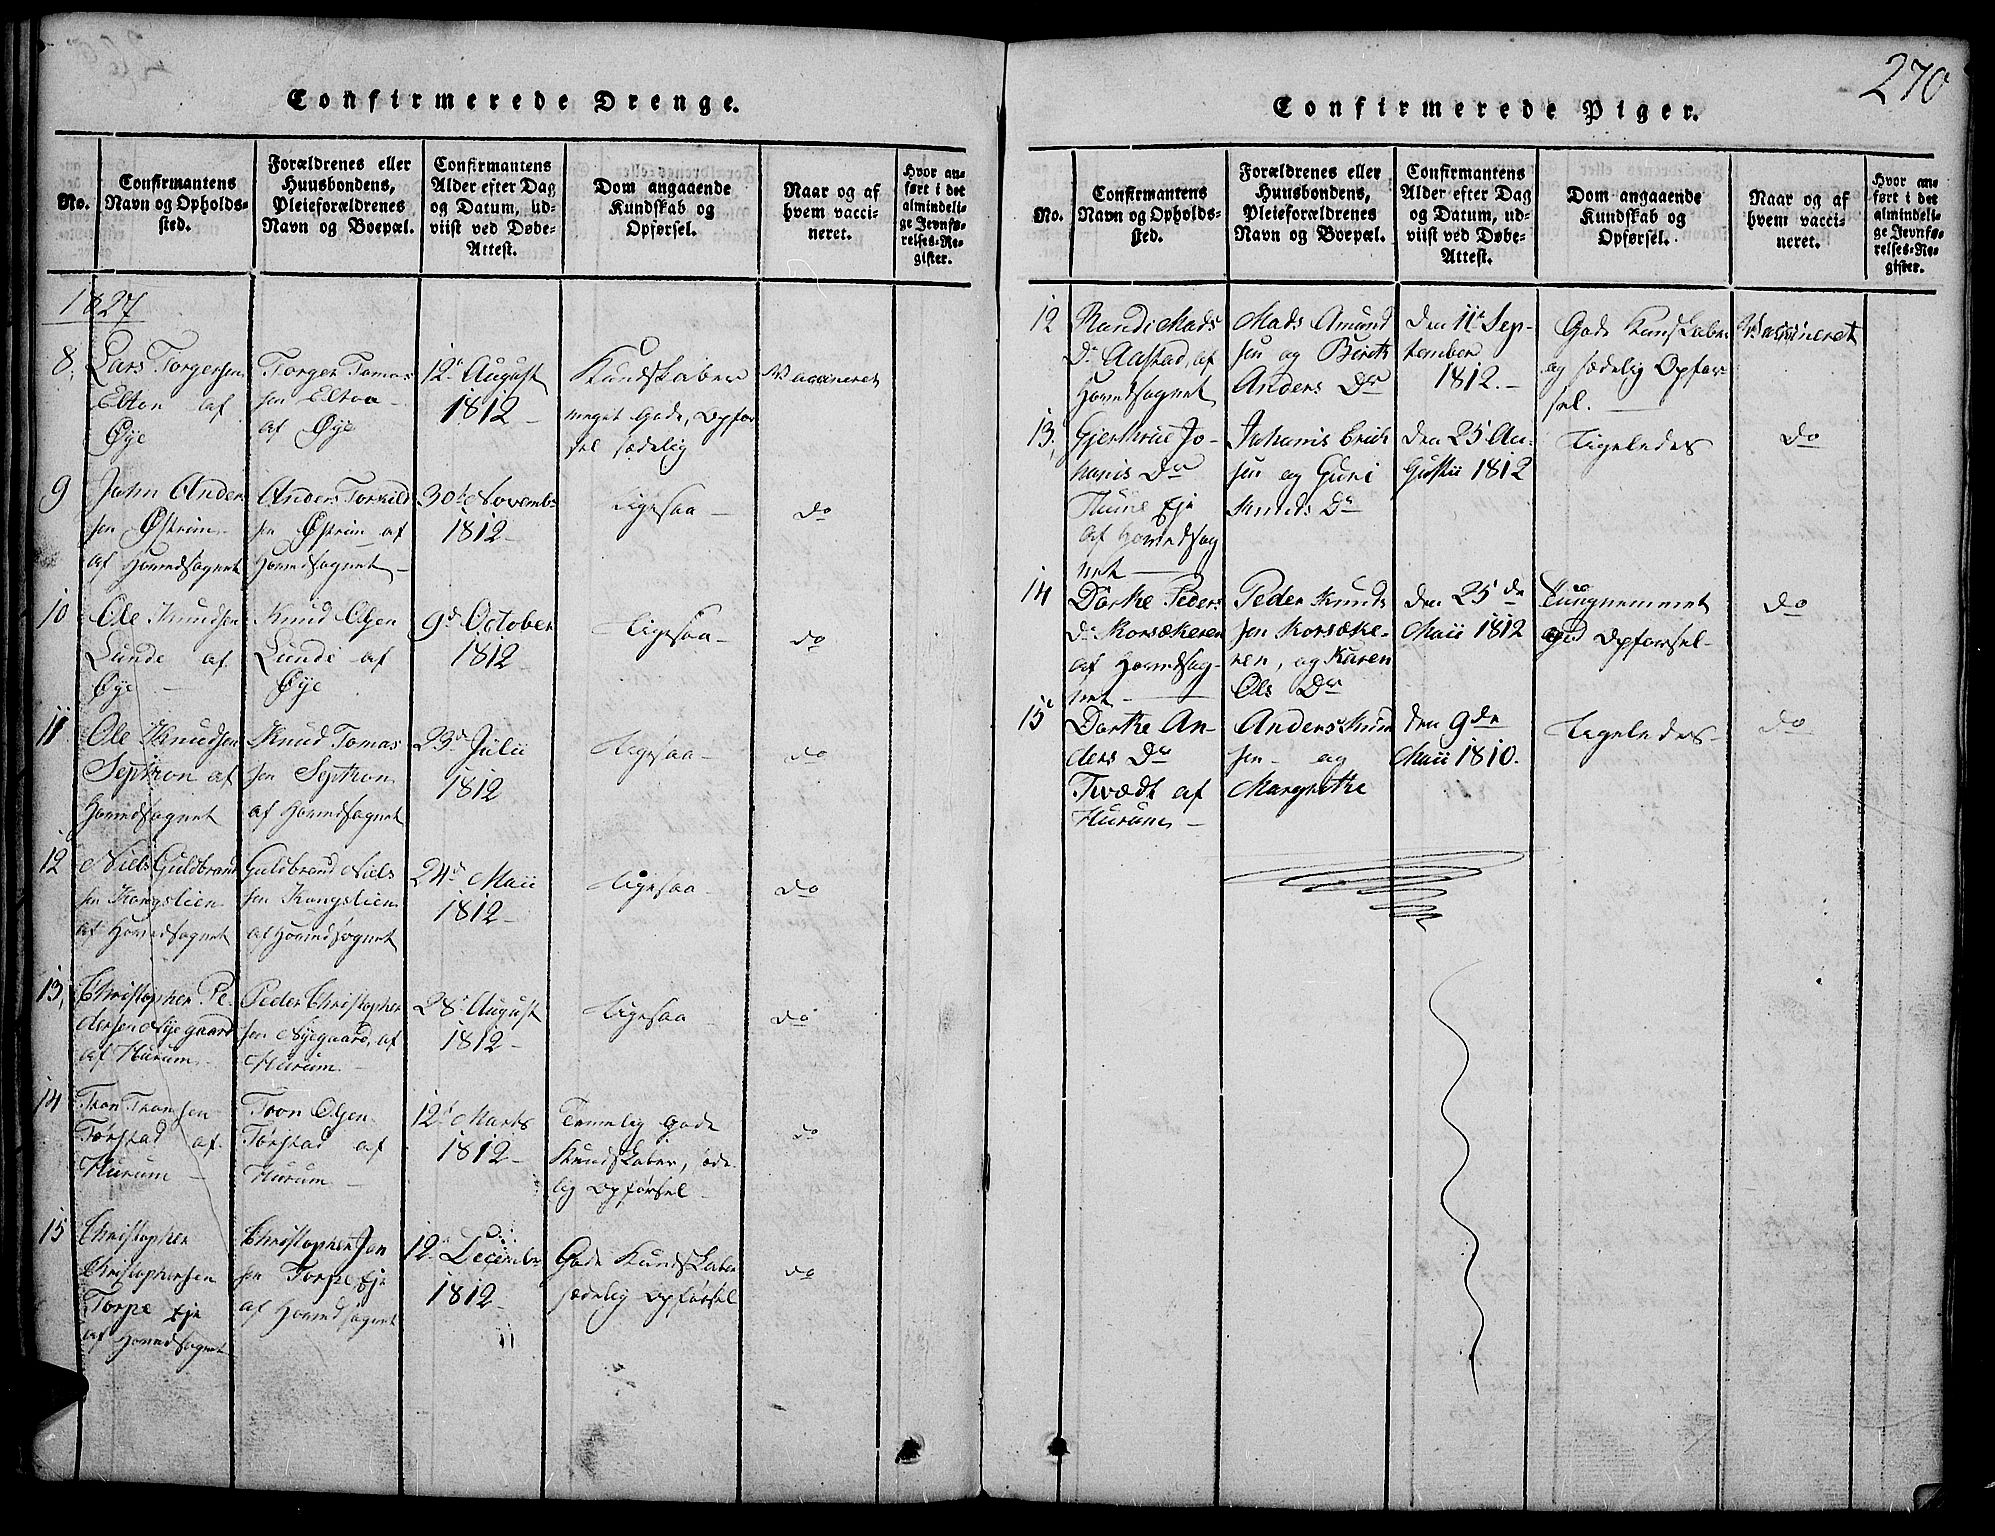 270
Confirmerede Drenge.
No.
Confirmantens
Navn og Opholds-
sted.
Forældrenes eller
Huusbondens,
Pleieforældrenes
Navn og Boepæl.
Confirmantens
Alder efter Dag
og Datum, ud-
viist ved Døbe-
Attest.
Dom angaaende
Kundskab og
Opførsel.
Naar og af
hvem vacci-
neret.
Hvor an-
ført i det
almindeli-
ge Jevnfø-
relses-Re-
gister.
1827
8,
Lars Torgersen
Elton af
Øye
Torger Tomas
sen Elton
af Øye
12te August
1812
Kundskaber
meget Gode, Opfør
sel sædelig
Vaccineret
9
John Ander
sen Østrim
af Hovedsognet
Anders Torkild
sen Østrim af
Hovedsognet
30te Novembr
1812
Ligesaa
do
10
Ole Knudsen
Lunde af
Øye
Knud Olsen
Lunde af
Øye
9de October
1812
Ligesaa
do
11
Ole Knudsen
Septron af
Hovedsognet
Knud Tomas
sen Septron
af Hovedsognet
23de Julii
1812
Ligesaa
do
12
Niels Guldbrand
sen Kongslien
af Hovedsognet
Guldbrand Niels
sen Kongslien
af Hovedsognet
24de Maii
1812
Ligesaa
do
13,
Christopher Pe-
dersen Nyegaard
af Hurum
Peder Christopher
sen Nyegaard, af
Hurum
28de August
1812
Ligesaa
do
14
Tron Tronsen
Tørstad af
Hurum
Tron Olsen
Tørstad af
Hurum
12te Marts
1812
Temelig gode
Kundskaber, sæde-
lig Opførsel
do
15
Christopher
Christophersen
Torpe Eje
af Hovedsognet
Christopher Jon
sen Torpe Eje
af Hovedsognet
12te December
1812
Gode Kundskaber
sædelig Opførsel
do
Confirmerede Piger.
No.
Confirmantens
Navn og Opholds-
sted.
Forældrenes eller
Huusbondens,
Pleieforældrenes
Navn og Boepæl.
Confirmantens
Alder efter Dag
og Datum, ud-
viist ved Døbe-
Attest.
Dom angaaende
Kundskab og
Opførsel.
Naar og af
hvem vacci-
neret.
Hvor an-
ført i det
almindeli-
ge Jevnfø-
relses-Re-
gister.
12
Randi Mads
Dr Aastad, af
Hovedsognet
Mads Amund
sen og Bereth
Anders Dr
Den 11te Sep-
tember
1812.
Gode Kunskaber
og sædelig Opfør
sel.
Vaccineret
13,
Gjertrue Jo-
hanis Dr
Hune Eje
af Hovedsog
net
Johanis Erich
sen og Guni
Knuds Dr
Den 25 Au-
Gustii 1812
Ligeledes
do
14
Dorthe Peders
Dr Korsækeren
af Hovedsog-
net
Peder Knud
sen Korsæke-
ren, og Karen
Ols Dr
Den 25de
Maii 1812
Tungnemmet
god Opførsel
do
15
Dorthe An-
ders Dr
Twædt af
Hurum
Anders Knud
sen og
Margrethe
Den 9de
Maii 1810.
Ligeledes
do